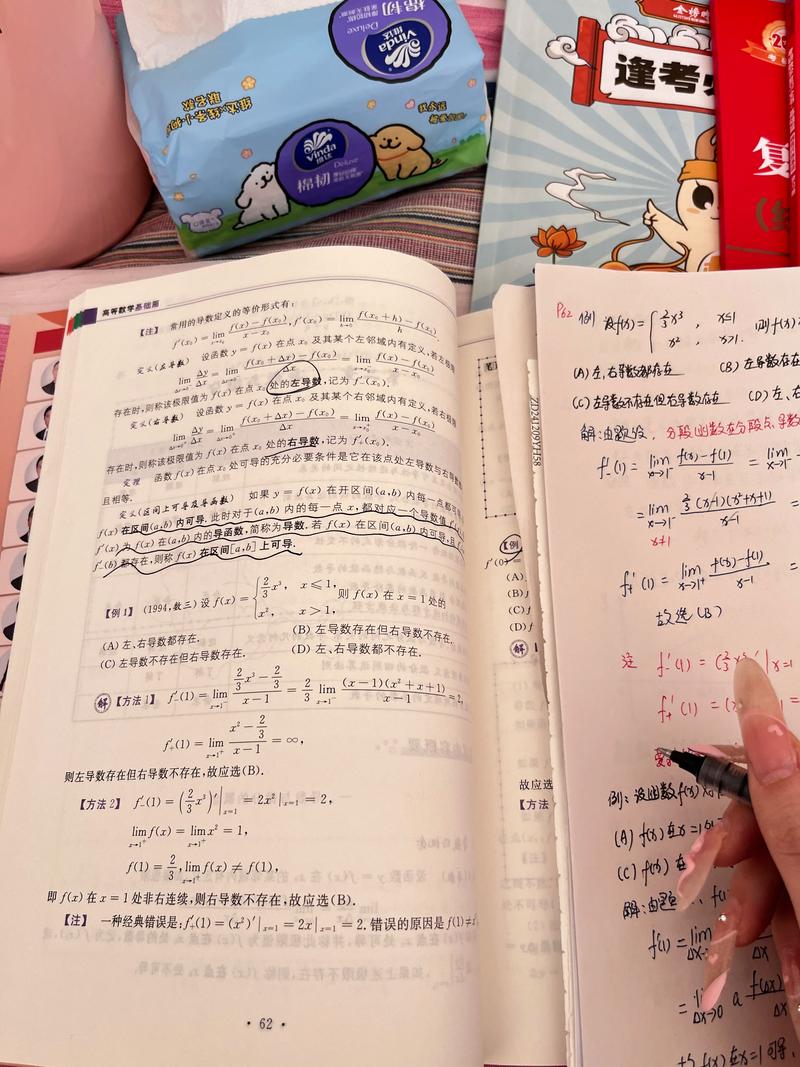 棉韧
厚韧如棉
Deluxe
Vinda
Vinda
维达
Deluxe
棉韧
逢考
复
高等数学基础篇
【注】 常用的导数定义的等价形式有:
f′(x₀) = lim_{x→x₀} (f(x) − f(x₀))/(x − x₀), f′(x₀) = lim_{h→0} (f(x₀ + h) − f(x₀))/h.
定义(左导数) 设函数 y = f(x) 在点 x₀ 及其某个左邻域内有定义,若左极限
lim_{Δx→0⁻} Δy/Δx = lim_{Δx→0⁻} (f(x₀ + Δx) − f(x₀))/Δx = lim_{x→x₀⁻} (f(x) − f(x₀))/(x − x₀)
存在时,则称该极限值为 f(x) 在点 x₀ 处的左导数,记为 f′₋(x₀).
定义(右导数) 设函数 y = f(x) 在点 x₀ 及其某个右邻域内有定义,若右极限
lim_{Δx→0⁺} Δy/Δx = lim_{Δx→0⁺} (f(x₀ + Δx) − f(x₀))/Δx = lim_{x→x₀⁺} (f(x) − f(x₀))/(x − x₀)
存在时,则称该极限值为 f(x) 在点 x₀ 处的右导数,记为 f′₊(x₀).
定理 函数 f(x) 在点 x₀ 处可导的充分必要条件是它在该点处左导数与右导数
且相等.
定义(区间上可导及导函数) 如果 y = f(x) 在开区间(a,b) 内每一点都可
f(x) 在区间(a,b) 内可导. 此时对于(a,b) 内的每一点 x,都对应一个导数值
f′(x) 为 f(x) 在(a,b) 内的导函数,简称为导数. 若 f(x) 在区间(a,b) 内可导,且
f′₋(b) 都存在,则称 f(x) 在区间[a,b] 上可导.
【例 1】 (1994,数三) 设 f(x) = { 2/3 x³, x ≤ 1, x², x > 1, 则 f(x) 在 x = 1 处的
(A) 左、右导数都存在. (B) 左导数存在但右导数不存在.
(C) 左导数不存在但右导数存在. (D) 左、右导数都不存在.
解 【方法 1】 f′₋(1) = lim_{x→1⁻} (2/3 x³ − 2/3)/(x − 1) = 2/3 lim_{x→1⁻} (x − 1)(x² + x + 1)/(x − 1) = 2,
f′₊(1) = lim_{x→1⁺} (x² − 2/3)/(x − 1) = ∞,
则左导数存在但右导数不存在,故应选(B).
【方法 2】 f′₋(1) = (2/3 x³)′|ₓ₌₁ = 2x²|ₓ₌₁ = 2,
lim_{x→1⁺} f(x) = lim_{x→1⁺} x² = 1,
f(1) = 2/3, lim_{x→1⁺} f(x) ≠ f(1),
即 f(x) 在 x = 1 处非右连续,则右导数不存在,故应选(B).
【注】 一种经典错误是: f′₊(1) = (x²)′|ₓ₌₁ = 2x|ₓ₌₁ = 2. 错误的原因是 f(1) ≠
· 62 ·
【例
f′(0) =
(A)
(B)
(C)
(D)
解
故应选
【方法
ZD241209YH58
P62 例 设f(x) = { 2/3 x³, x≤1 x², x>1. 则f(x)
(A) 左、右导数都存在 (B) 左导数存在
(C) 左导数不存在但右导数存在 (D) 左、右
解:由题设, 分段函数在分段点导数
f′₋(1) = lim_{x→1⁻} (f(x) − f(1))/(x−1) = lim_{x→1⁻}
= lim_{x→1⁻} 2/3 (x−1)(x²+x+1)/(x−1) =
x≠1
f′₊(1) = lim_{x→1⁺} (f(x) − f(1))/(x−1) =
故选(B)
注 f′₋(1) = (2/3 x³)′|x=1
f′₊(1) = (
例: 设函数f(x)
(A) f(x)在x=1
(C) f(x)在
解:由题
f′(1) = lim_{Δx→0} /Δx
= lim_{Δx→0} a f(Δx)/Δx
f(x)在x=1可导,